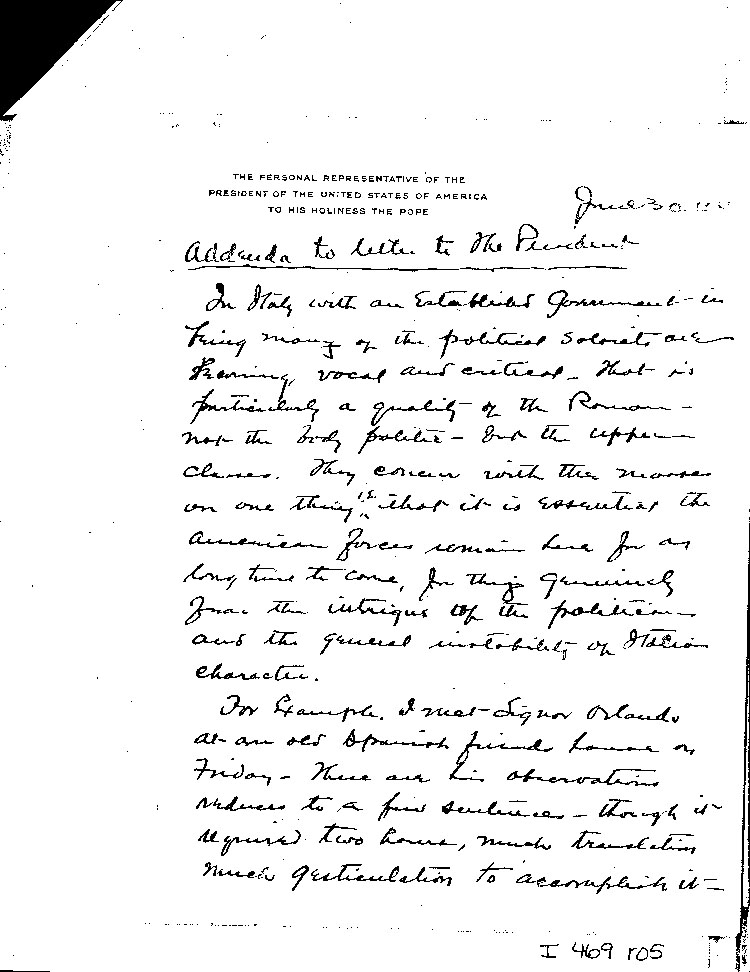 THE PERSONAL REPRESENTATIVE OF THE
PRESIDENT OF THE UNITED STATES OF AMERICA
TO HIS HOLINESS THE POPE
June 30
Addenda to letter to the President
In Italy with an Established Government in
being many of the political are
vocal and critical - that is
particularly a quality of the Roman -
not the body politic - but the upper
classes. They concur with the masses
on one thing, is, that it is essential the
American forces remain here for a
long time to come, for they genuinely
fear the intrigue of the politicians
and the general instability of Italian
character.
For Example, I met Signor Orlando
at an old Spanish friends house on
Friday - These are his observations
reduced to a few sentences - though it
required two hours, much translation
much gesticulation to accomplish it -
I 469 r05